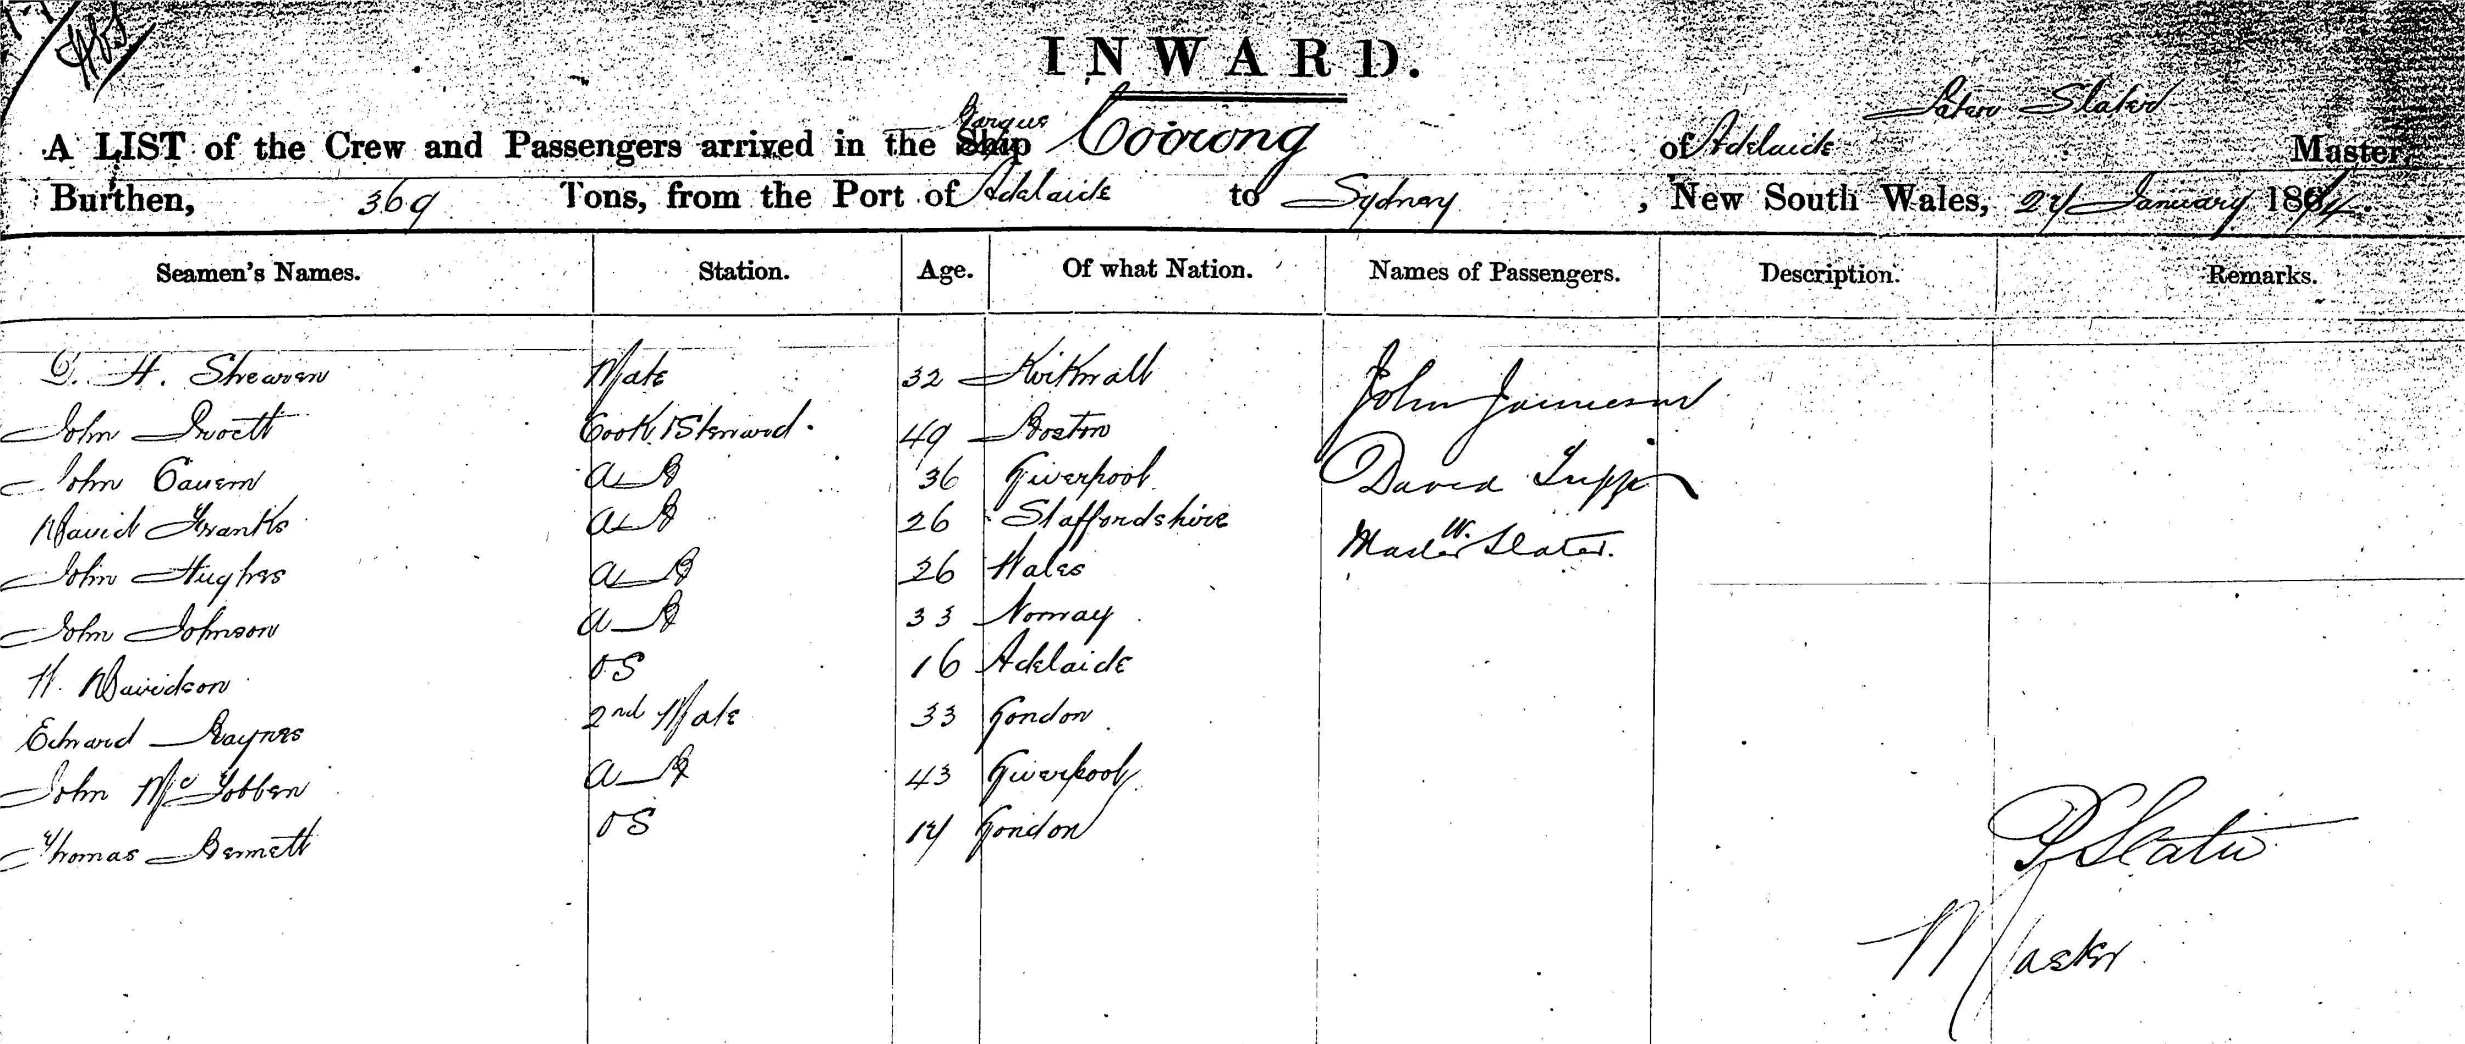 INWARD.
A LIST of the Crew and Passengers arrived in the Ship Barque Coorong of Adelaide Slater Master,
Burthen, 369 Tons, from the Port of Adelaide to Sydney, New South Wales, 24 January 18
Seamen's Names. Station. Age. Of what Nation. Names of Passengers. Description. Remarks.
H. Shearer Mate 32 Kirkwall John Jamieson
John Cook & Steward. 49 Boston
John AB 36 Liverpool David
David Franks AB 26 Staffordshire
John Hughes AB 26 Wales Master W. Slater.
John Johnson AB 33 Norway
H. Davidson OS 16 Adelaide
Edward Haynes 2nd Mate 33 London
John McGobben AB 43 Liverpool
Thomas Bennett OS London
P Slater
Master